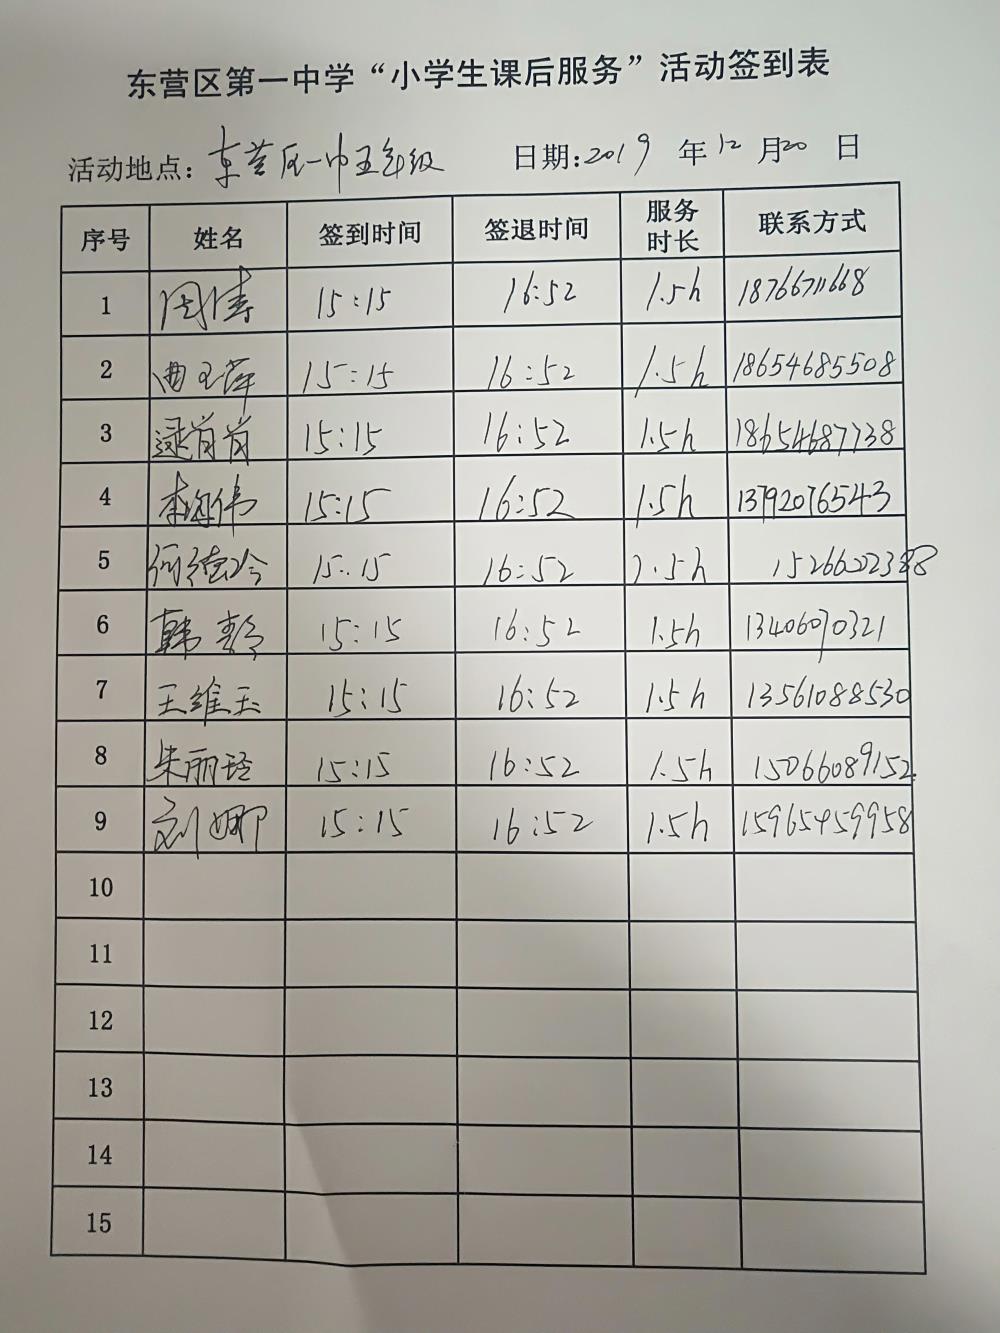 东营区第一中学“小学生课后服务”活动签到表
活动地点：东营区一中五年级 日期：2019年12月20日
序号 姓名 签到时间 签退时间 服务时长 联系方式
1 周涛 15:15 16:52 1.5h 18766711668
2 曲玉萍 15:15 16:52 1.5h 18654685508
3 逯肖肖 15:15 16:52 1.5h 18654687738
4 李海伟 15:15 16:52 1.5h 13792076543
5 何德玲 15:15 16:52 1.5h 15266002388
6 韩 15:15 16:52 1.5h 13406070321
7 王维玉 15:15 16:52 1.5h 13561088530
8 朱丽玲 15:15 16:52 1.5h 15066089152
9 刘娜 15:15 16:52 1.5h 15965459958
10
11
12
13
14
15